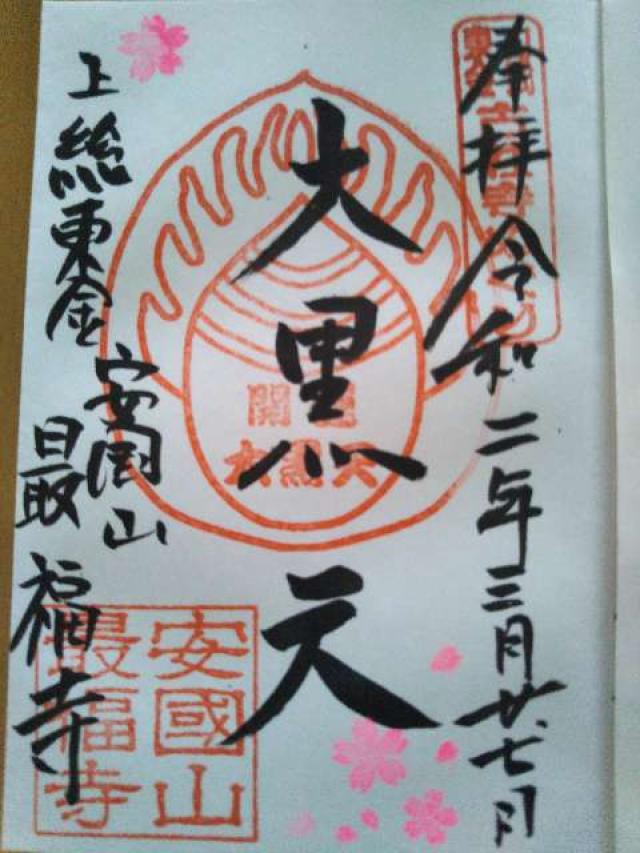 奉拝令和二年三月廿七日
大黒天
上総東金
安国山
最福寺
開運
大黒天
安國山
最福寺